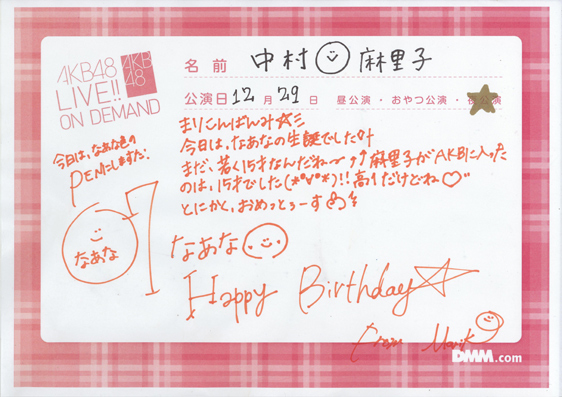 AKB48
LIVE!!
ON DEMAND
AKB
48
名前 中村 麻里子
公演日 12月29日 昼公演・おやつ公演・夜公演
まりこんばんみ☆ミ
今日は、なぁなの生誕でした
まだ、若く15才なんだね〜↑↑麻里子がAKBに入った
のは、15才でした(*°∀°*)!!高1だけどね♡
とにかく、おめっとぅーす
今日は、なぁな色の
PENにしますた!
なぁな
7
なぁな
Happy Birthday☆
From Mariko
DMM.com